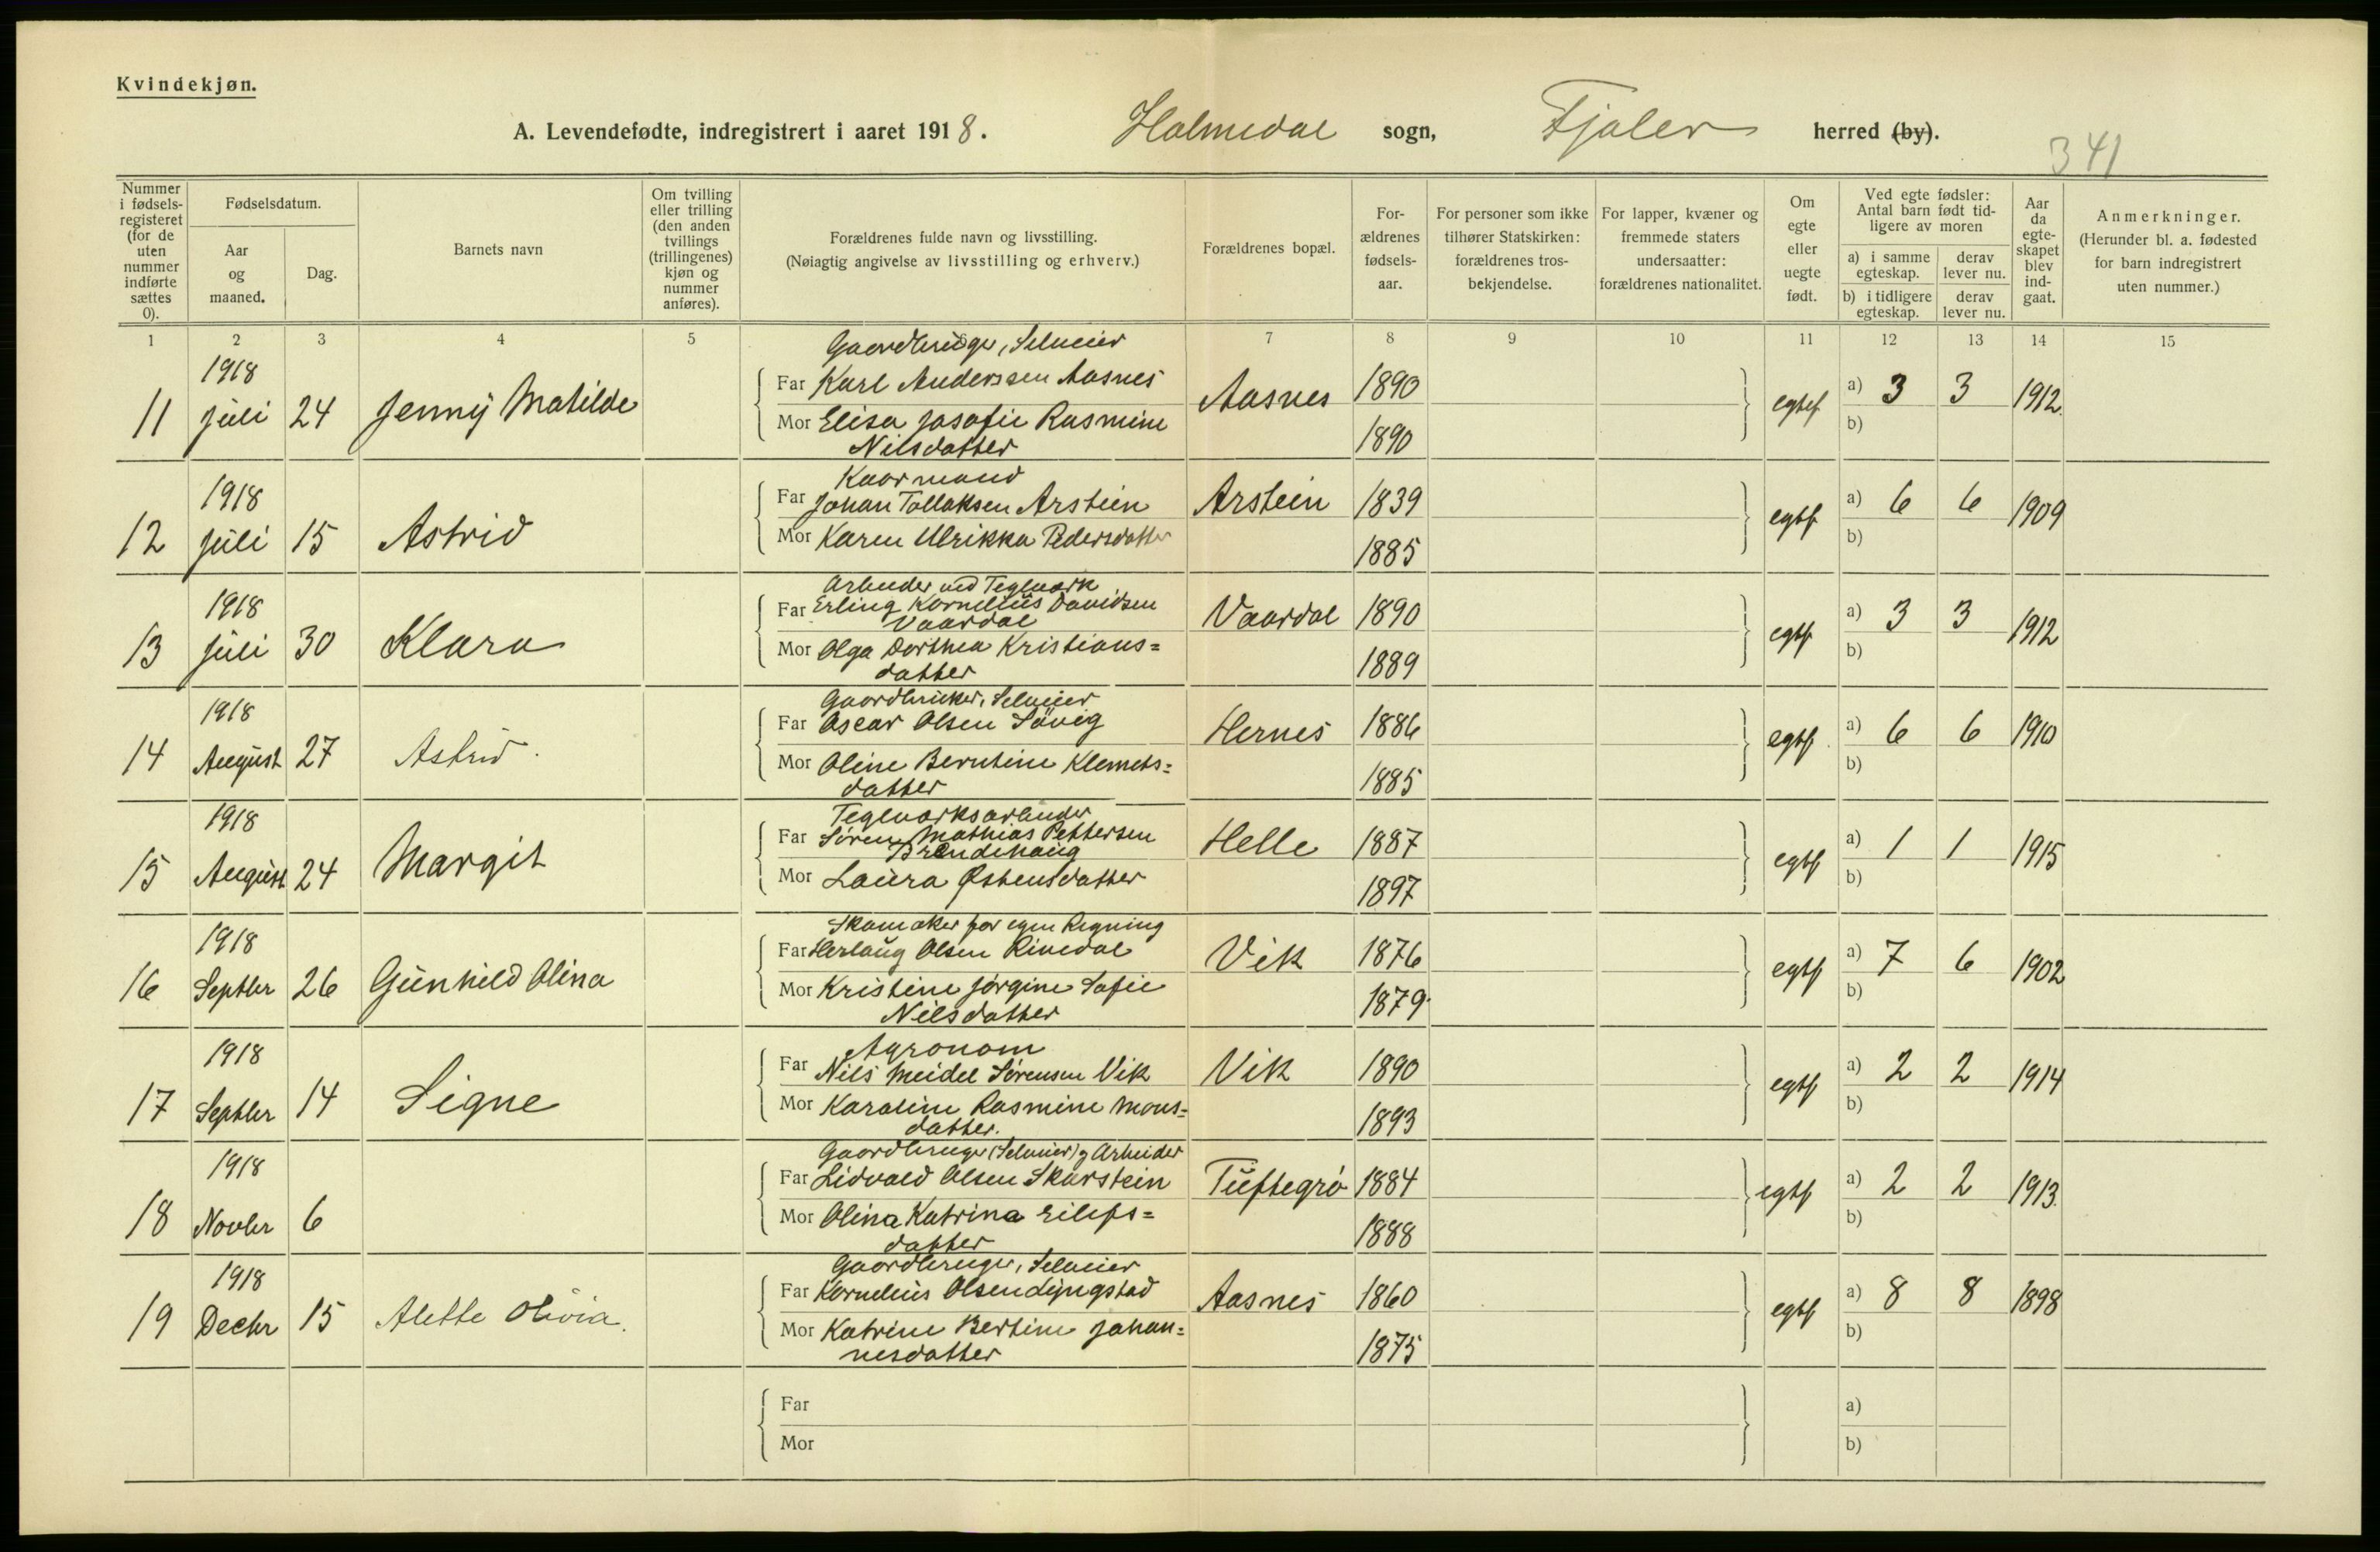 Kvindekjøn.
A. Levendefødte, indregistrert i aaret 1918. Holmedal sogn, Fjaler herred (by).
341
Nummer i fødsels-registeret (for de uten nummer indførte sættes 0).
Fødselsdatum.
Aar og maaned.
Dag.
Barnets navn
Om tvilling eller trilling (den anden tvillings (trillingenes) kjøn og nummer anføres).
Forældrenes fulde navn og livsstilling.
(Nøiagtig angivelse av livsstilling og erhverv.)
Forældrenes bopæl.
For-ældrenes fødsels-aar.
For personer som ikke tilhører Statskirken: forældrenes tros-bekjendelse.
For lapper, kvæner og fremmede staters undersaatter: forældrenes nationalitet.
Om egte eller uegte født.
Ved egte fødsler: Antal barn født tid-ligere av moren
a) i samme egteskap. derav lever nu.
b) i tidligere egteskap. derav lever nu.
Aar da egte-skapet blev ind-gaat.
Anmerkninger.
(Herunder bl. a. fødested for barn indregistrert uten nummer.)
1 2 3 4 5 6 7 8 9 10 11 12 13 14 15
Gaardbruger, Selveier
1918
11 Juli 24 Jenny Matilde Far Karl Anderssen Aasnes Aasnes 1890 egtef. a) 3 3 1912.
Mor Elisa Josofie Rasmine 1890 b)
Nilsdatter
Kaarmand
1918
12 Juli 15 Astrid Far Johan Tollaksen Arstein Arstein 1839 egtf a) 6 6 1909
Mor Karen Ulrikka Pedersdatter 1885 b)
Arbeider ved Teglverk
1918
13 Juli 30 Klara Far Erling Kornelius Davidsen Vaardal 1890 egtf a) 3 3 1912
Vaardal
Mor Olga Dorthea Kristians= 1889 b)
datter
Gaardbruker, Selveier
1918
14 August 27 Astrid. Far Oscar Olsen Søvig Hernes 1886 egtf. a) 6 6 1910
Mor Oline Berntine Klemets= 1885 b)
datter
Teglverksarbeider
1918
15 August 24 Margit Far Søren Mathias Pettersen Helle 1887 egtf a) 1 1 1915
Brendehaug
Mor Laura Østensdatter 1897 b)
Skomaker for egen Regning
1918
16 Septbr 26 Gunhild Olina Far Herlaug Olsen Rivedal Vik 1876 egtf a) 7 6 1902
Mor Kristine Jørgine Sofie 1879. b)
Nilsdatter
Agronom
1918
17 Septbr 14 Signe Far Nils Meidel Sørensen Vik Vik 1890 egtf a) 2 2 1914
Mor Karoline Rasmine Mons= 1893 b)
datter.
Gaardbruger (Selveier) og Arbeider
1918
18 Novbr 6 Far Lidvald Olsen Skarstein Tuftegrø 1884 egtf a) 2 2 1913.
Mor Olina Katrina Eilifs= 1888 b)
datter
Gaardbruger, Selveier
1918
19 Decbr 15 Alette Olivia. Far Kornelius Olsen Lyngstad Aasnes 1860 egtf a) 8 8 1898
Mor Katrine Bertine Johan= 1875 b)
nesdatter
Far a)
Mor b)